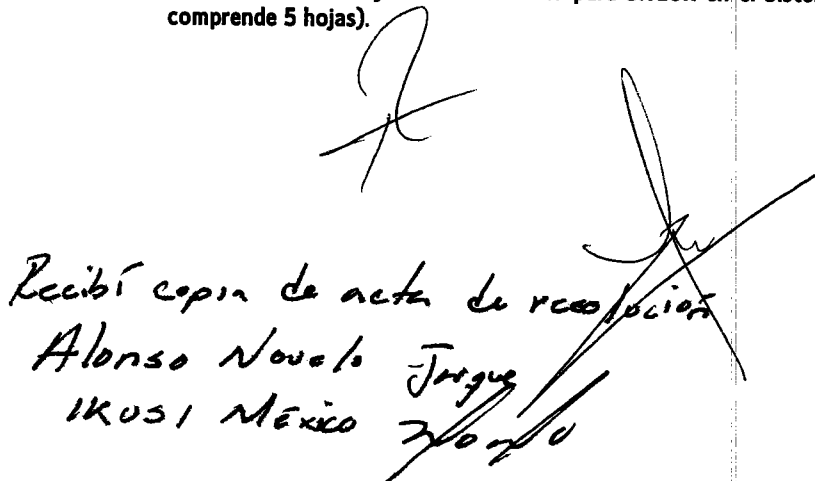 comprende 5 hojas).
Recibí copia de acta de resolución
Alonso Novelo Jorque
IKUSI México